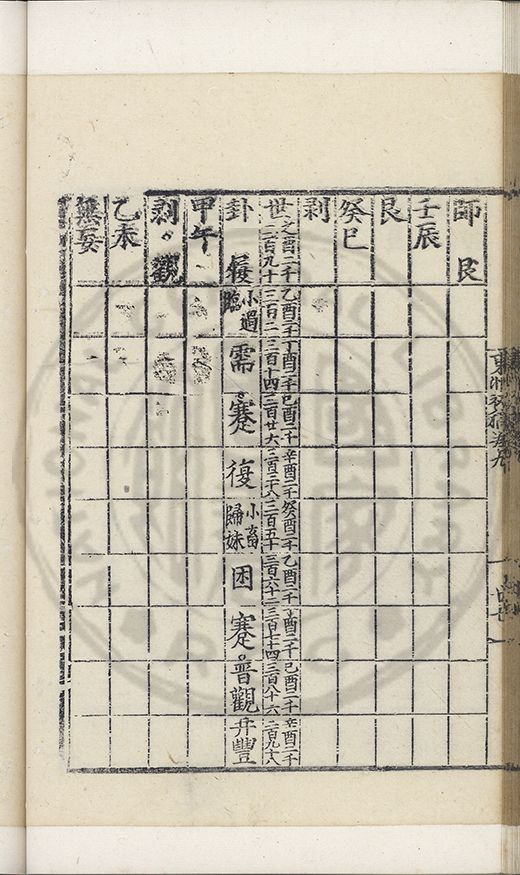 東洲初稿卷九
師 艮
壬辰
艮
癸巳
剥
世 之酉二千二百九十
乙酉二千三百二
丁酉二千三百十四
己酉二千三百廿六
辛酉二千三百三十八
癸酉二千三百五十
乙酉二千三百六十二
酉二千三百七十四
己酉二千三百八十六
辛酉二千二百九十八
卦
小過
臨
需
蹇
復
小畜
歸妹
困
蹇
普觀
井豐
甲午
剥、觀
乙未
無妄